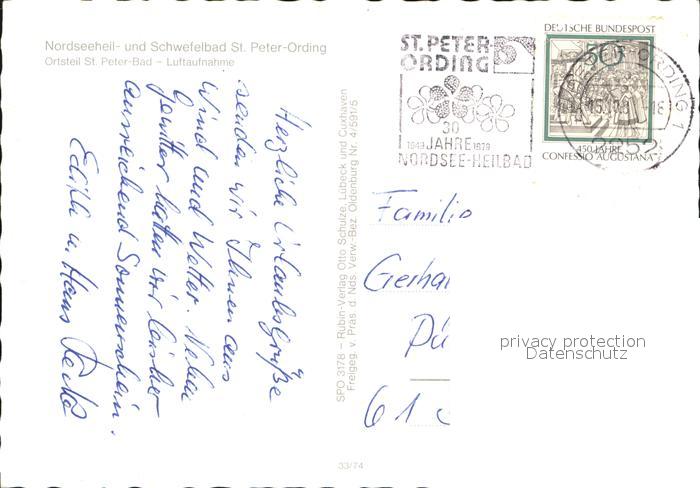 Nordseeheil- und Schwefelbad St. Peter-Ording
Ortsteil St. Peter-Bad – Luftaufnahme
Herzliche Urlaubsgrüße
senden wir Ihnen aus
Wind und Wetter. Neben
Gewitter hatten wir bisher
ausreichend Sonnenschein.
Edith u. Hans
SPO 3178 – Rubin-Verlag Otto Schulze, Lübeck und Cuxhaven
Freigeg. v. Präs. d. Nds. Verw.-Bez. Oldenburg Nr. 4/591/5
33/74
ST. PETER-
ORDING
30
1949 JAHRE 1979
NORDSEE-HEILBAD
DEUTSCHE BUNDESPOST
50
450 JAHRE
CONFESSIO AUGUSTANA
ORDING 1
Familie
Gerha
Dü
61
privacy protection
Datenschutz